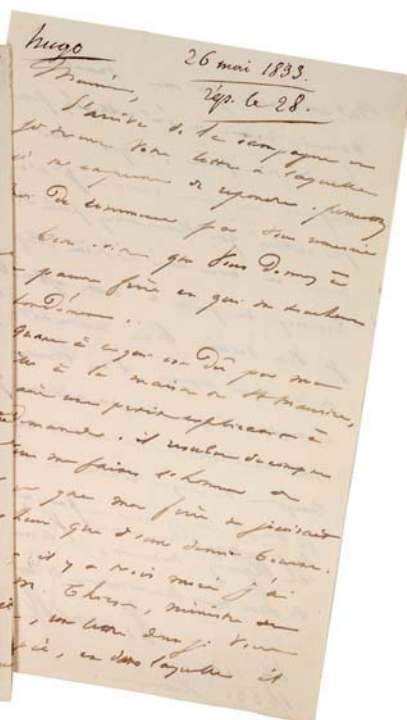 hugo
26 mai 1833.
rép. le 28.
Monsieur,
J'arrive de la campagne et
je trouve votre lettre à laquelle
je m'empresse de répondre. permettez
moi de commencer par vous remercier
bons soins que vous donnez à
pauvre frère et qui me touchent
quant à ce qui est dû par ma
à la maison de St Maurice,
une petite explication à
demander. il résulte du compte
me faites l'honneur de
que mon frère ne jouissait
que d'une demi bourse.
il y a trois mois j'ai
M. Thiers, ministre de
, une lettre dont je vous
, et dans laquelle il